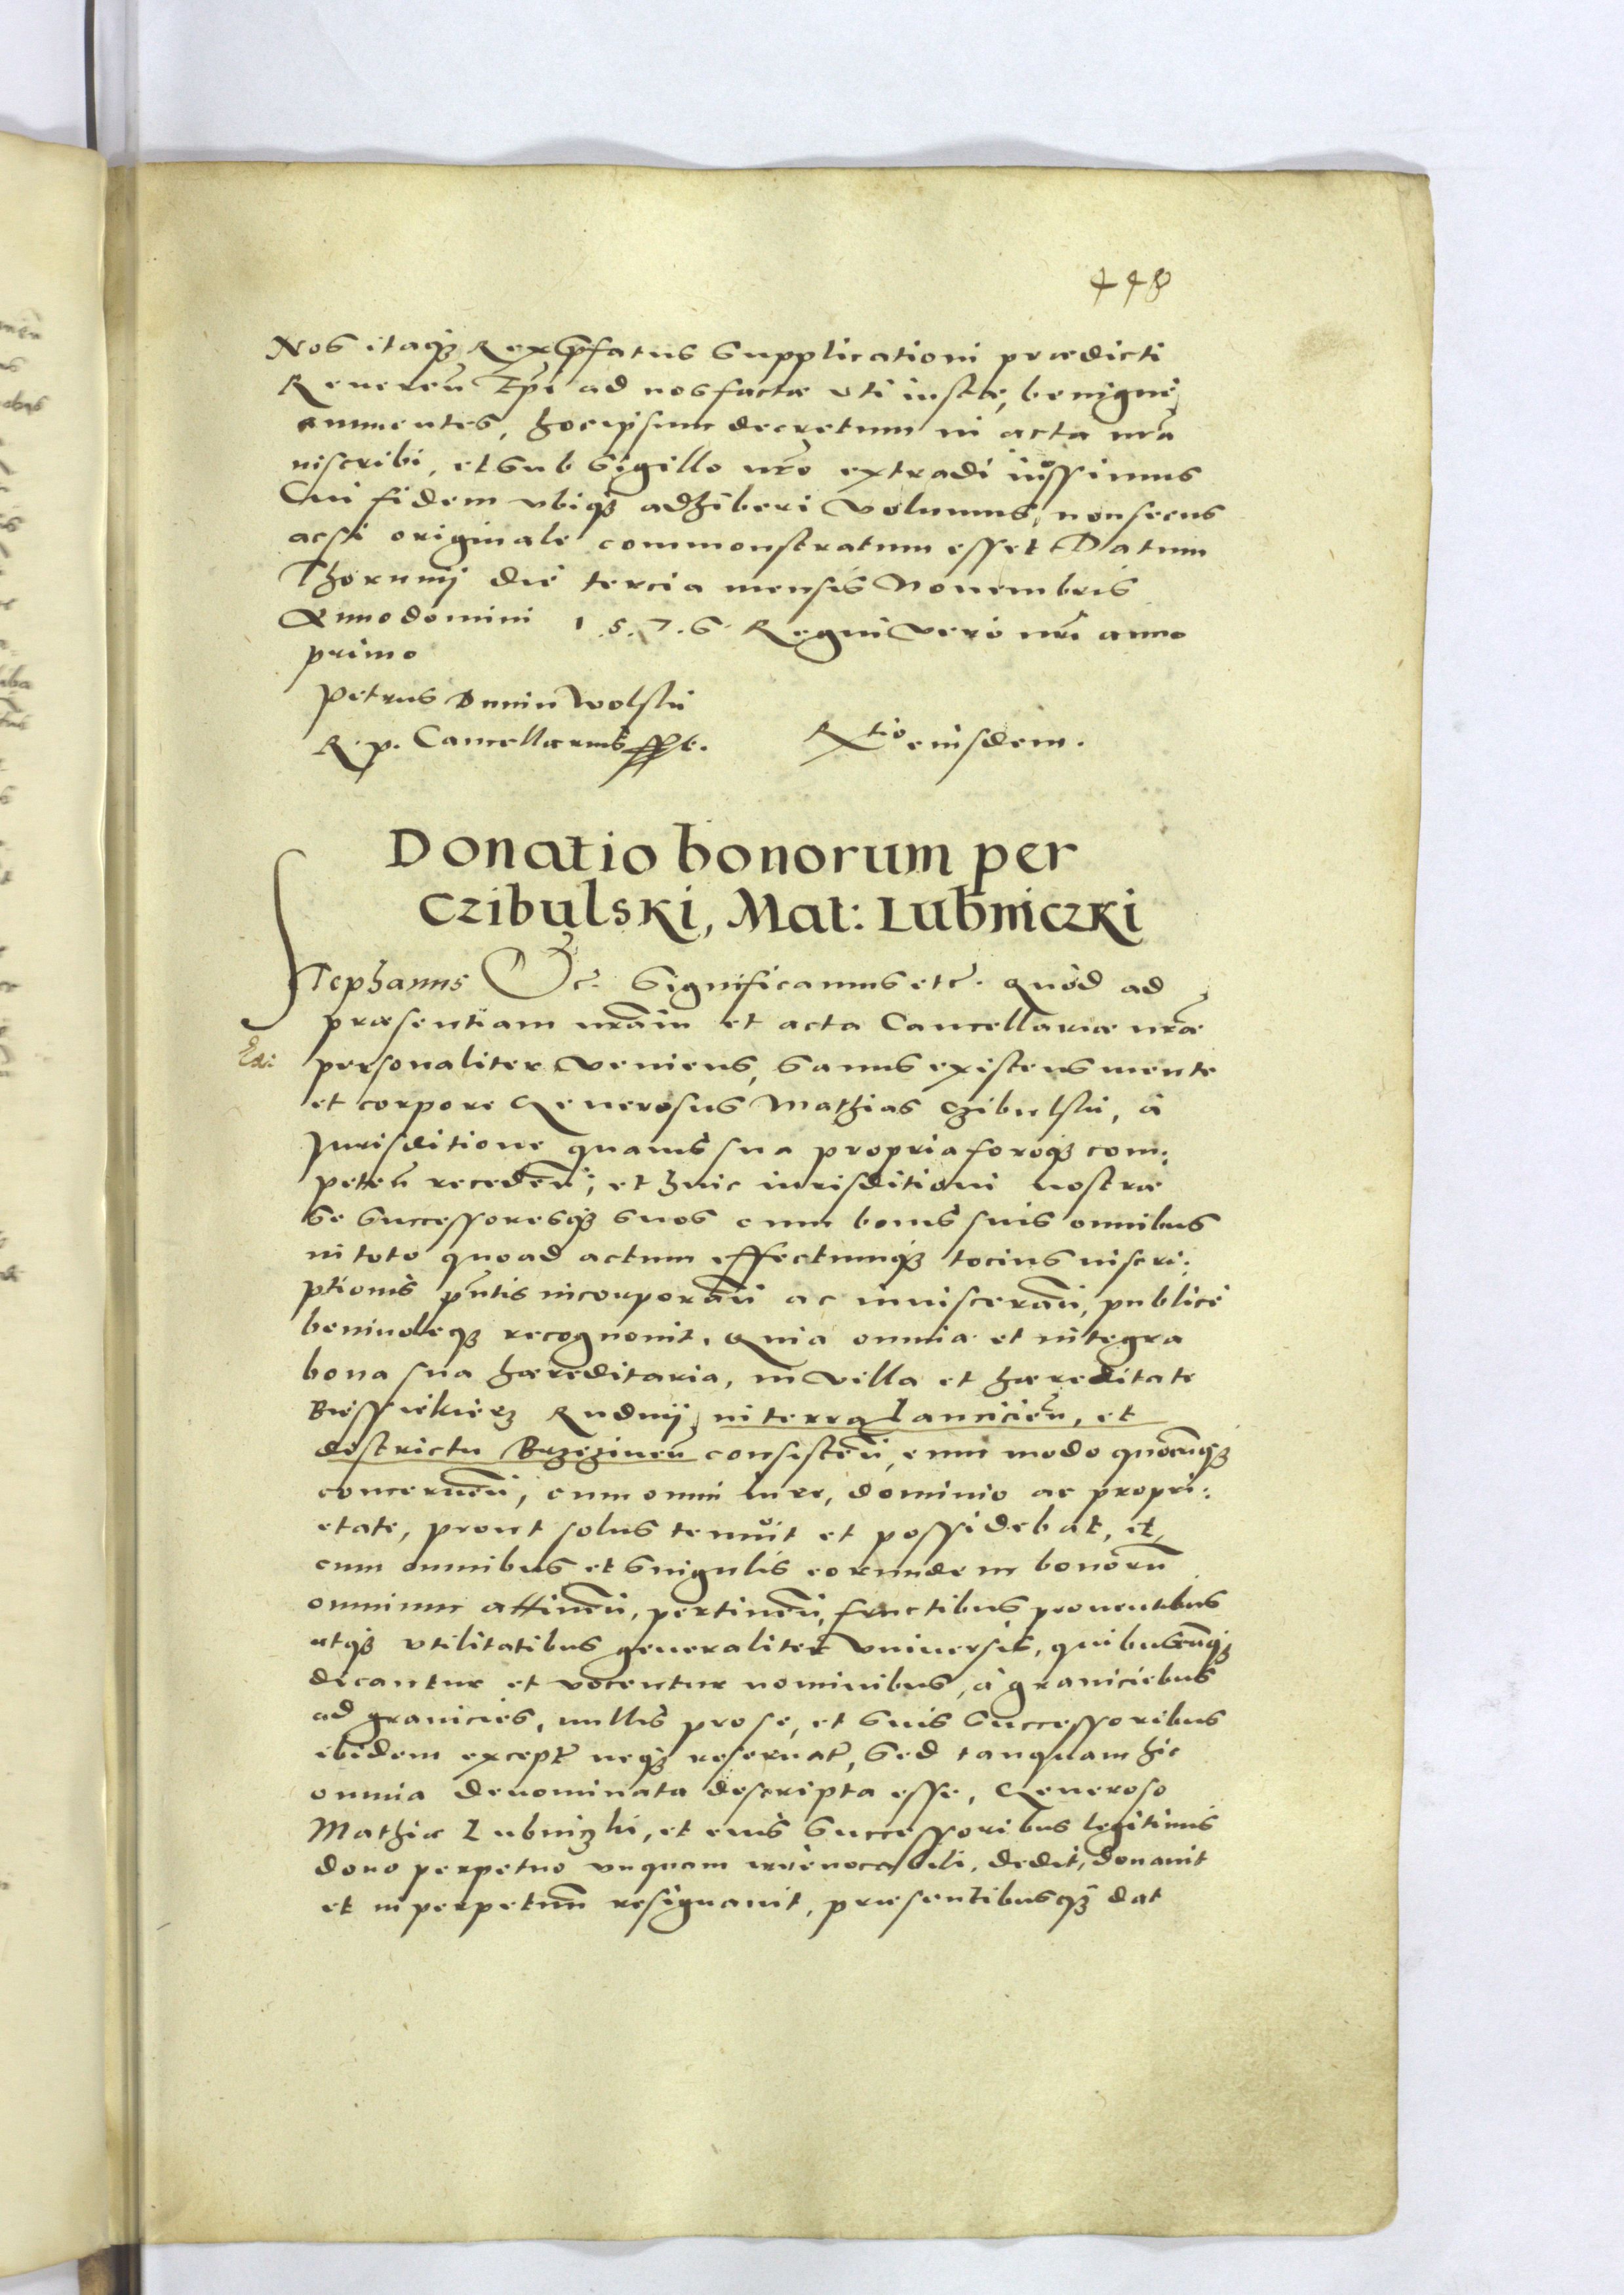 448
Nos itaqꜟ Rex p̄fatus supplicationi prædicti
Reueren̄ Ep̄i ad nos factæ vti iustæ, benignè
annuentes, hocipsum decretum in acta nr̄a
inscribi, et sub sigillo nr̄o extradi iussimus
Cui fidem vbiqꜟ adhiberi volumus, non secus
acsi originale commonstratum esset Datum
Thorunij die tercia mensis Nouembris
Anno domini 1.5.7.6. Regni vero nr̄i anno
primo
Petrus Dunin Wolski
R. p. Cancellarius sst.
Rtio eiusdem.
Donatio bonorum per
Czibulski, Mat: Lubniczki
Stephanus &c. Significamus etc. Quòd ad
præsentiam nr̄am et acta Cancellariæ nr̄æ
personaliter veniens, sanus existens mente
et corpore Generosus Mathias Czibulski, à
Jurisditione quauis sua propria foroqꜟ com:
peten̄ receden̄, et huic iurisditioni nostræ
se successoresqꜟ suos cum bonis suis omnibus
in toto quoad actum effectumqꜟ tocius inscri:
ptionis pn̄tis incorporan̄ ac inuisceran̄, publicè
beniuoleqꜟ recognouit. Quia omnia et integra
bona sua hæreditaria, in villa et hæreditate
Biessiekierz Rudnij, in terra Lancicien̄, et
destrictu Brzezinen̄ consisten̄, cum modo quocunqꜟ
concernen̄, cum omni iure, dominio ac propri:
etate, prout solus tenuit et possidebat, et
cum omnibus et singulis eorundem bonorū
omnium attinen̄, pertinen̄, fructibus prouentibus
atqꜟ vtilitatibus generaliter vniuersis, quibuscunqꜟ
dicantur et vocentur nominibus, à graniciebus
ad granicies, nullis pro se, et suis successoribus
ibidem except̄ neqꜟ reseruat̄, sed tanquam hic
omnia denominata descripta esse, Generoso
Mathiæ Lubniczki, et eius successoribus legitimis
dono perpetuo vnquam irreuocabili, dedit, donauit
et in perpetuū resignauit, præsentibusqꜟ dat